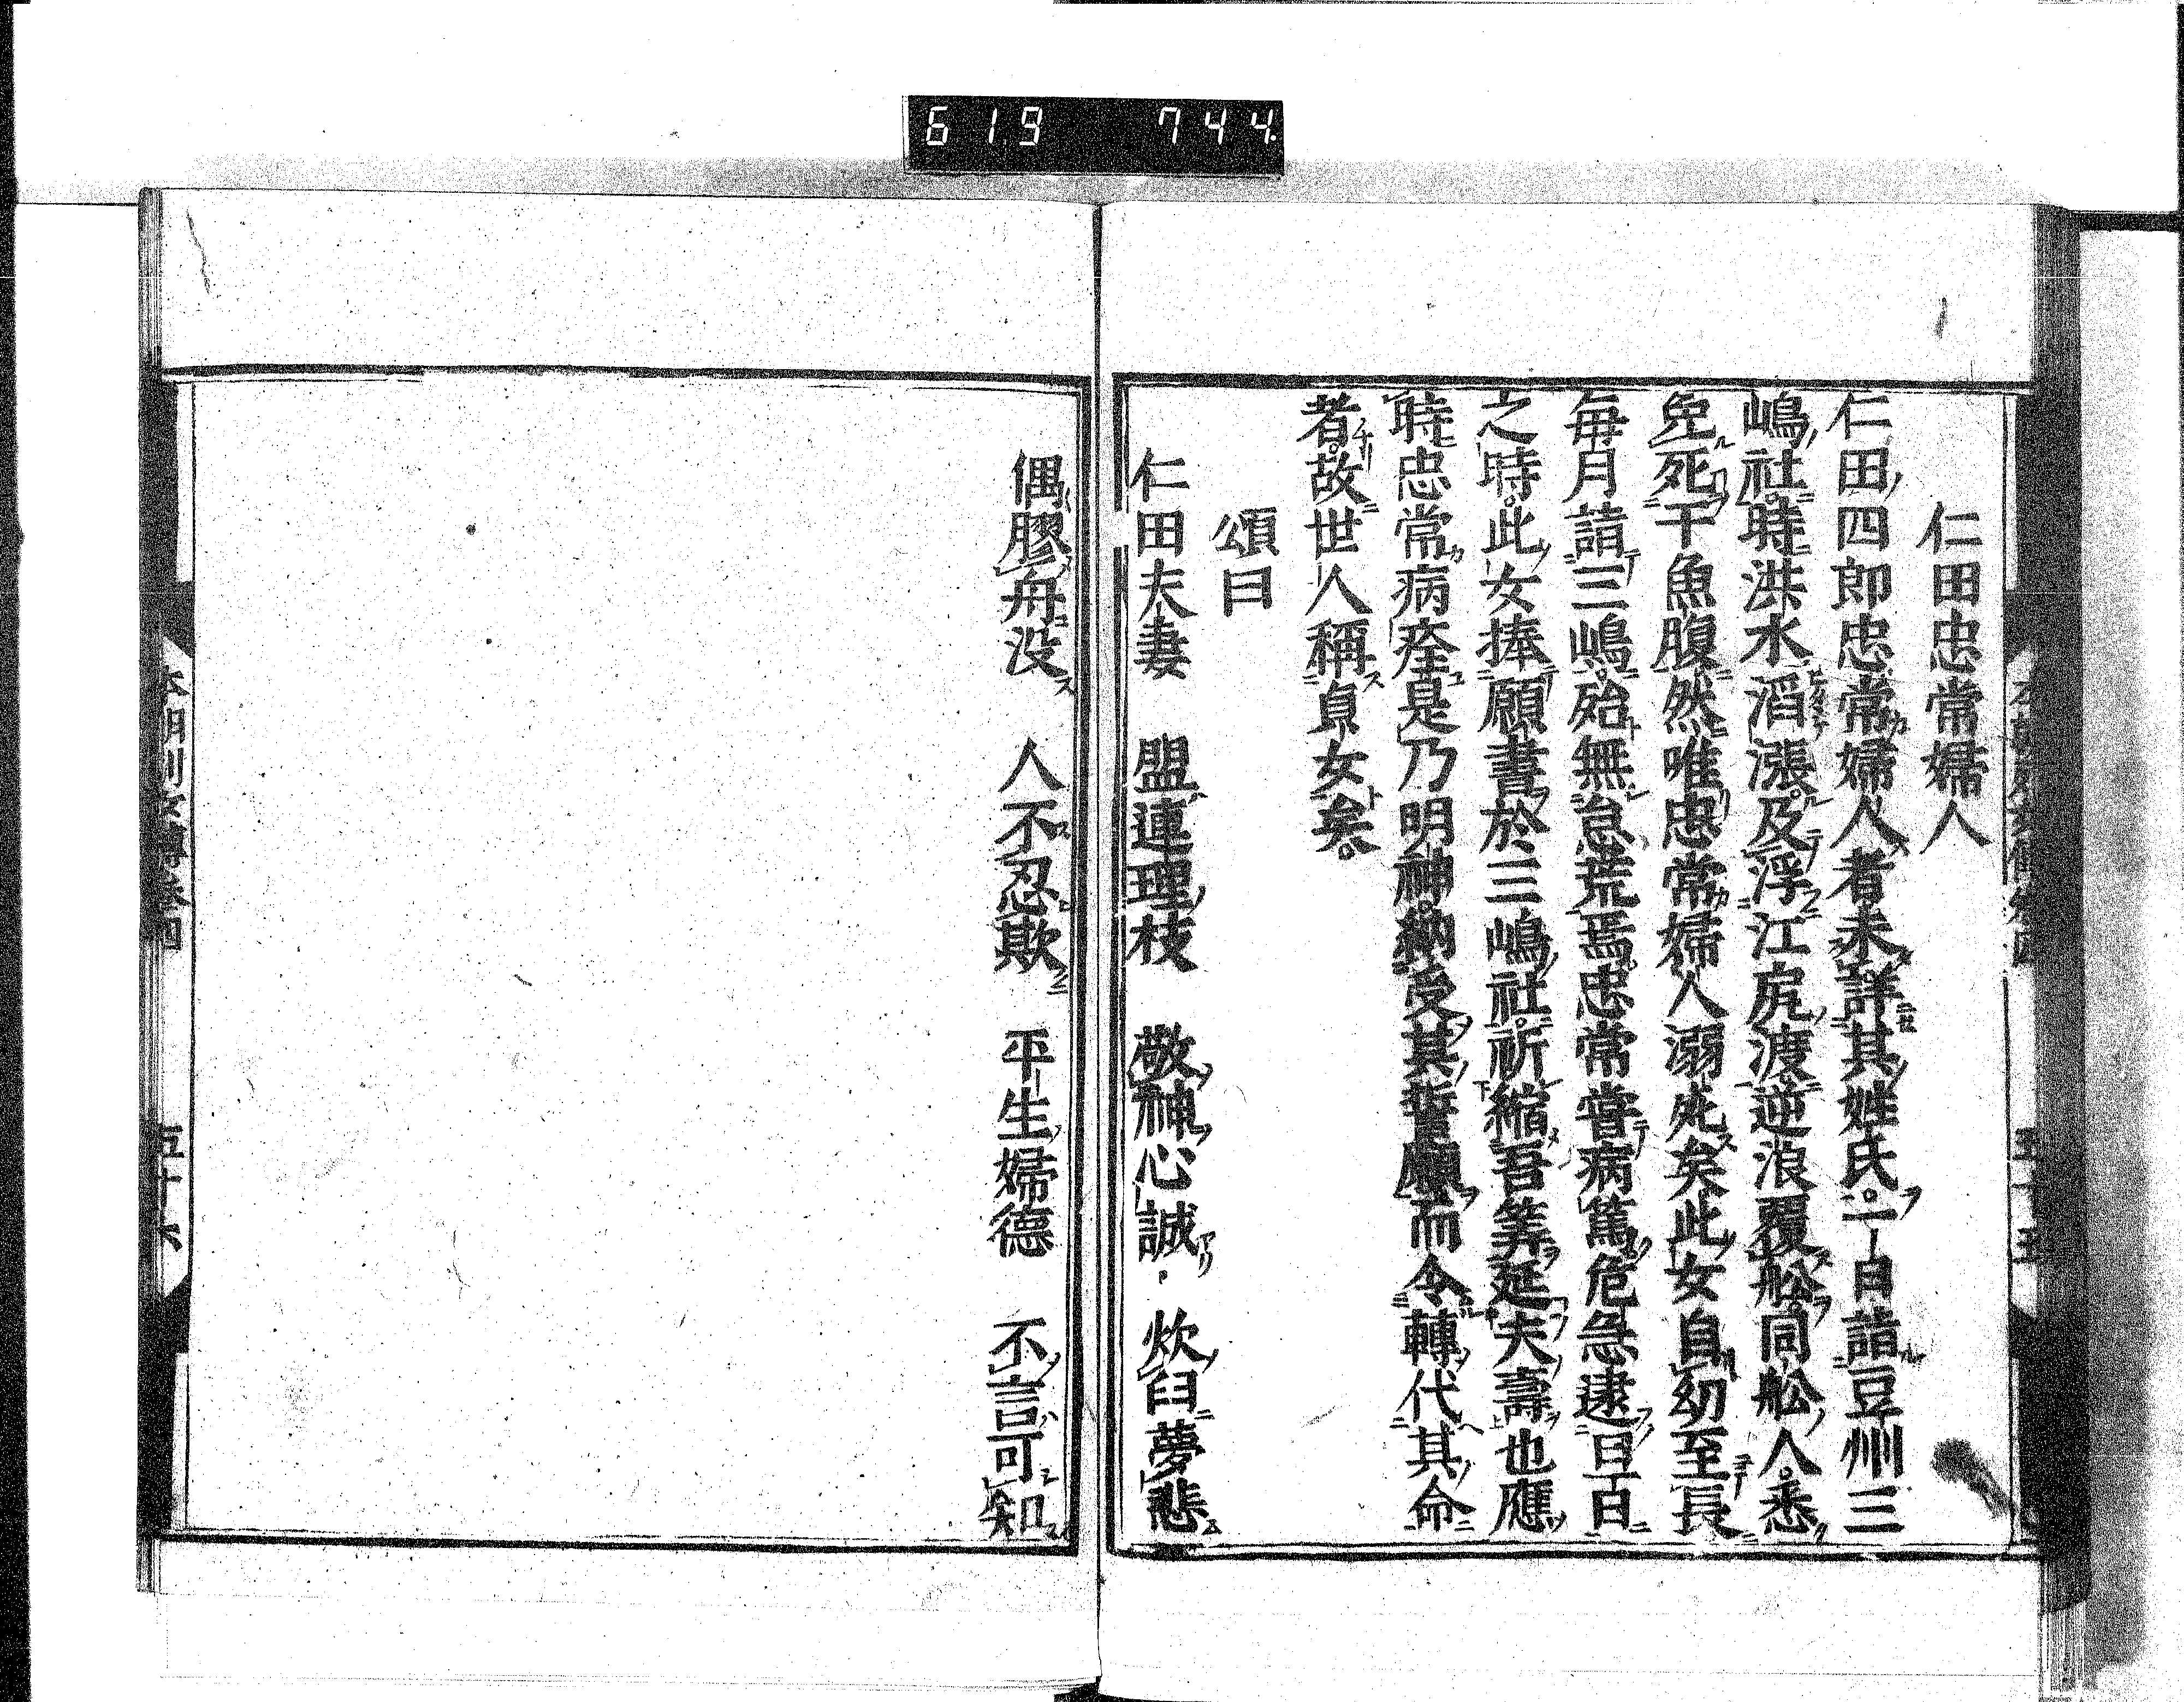 619 744
仁田忠常婦人
仁田四郎忠常婦人者未詳其姓氏一日詣豆州三
嶋社時洪水滔漲及浮江尻渡逆浪覆舩同舩人悉
免死于魚腹然唯忠常婦人溺死矣此女自幼至長
毎月詣三嶋殆無怠荒焉忠常嘗病篤危急逮曰百
之時此女捧願書於三嶋社祈縮吾筭延夫壽也應
時忠常病痊是乃明神納受其誓願而令轉代其命
者故世人稱貞女矣
頌曰
仁田夫妻 盟連理枝 敬神心誠 炊臼夢悲
偶膠舟没 人不忍欺 平生婦德 不言可知
五十六